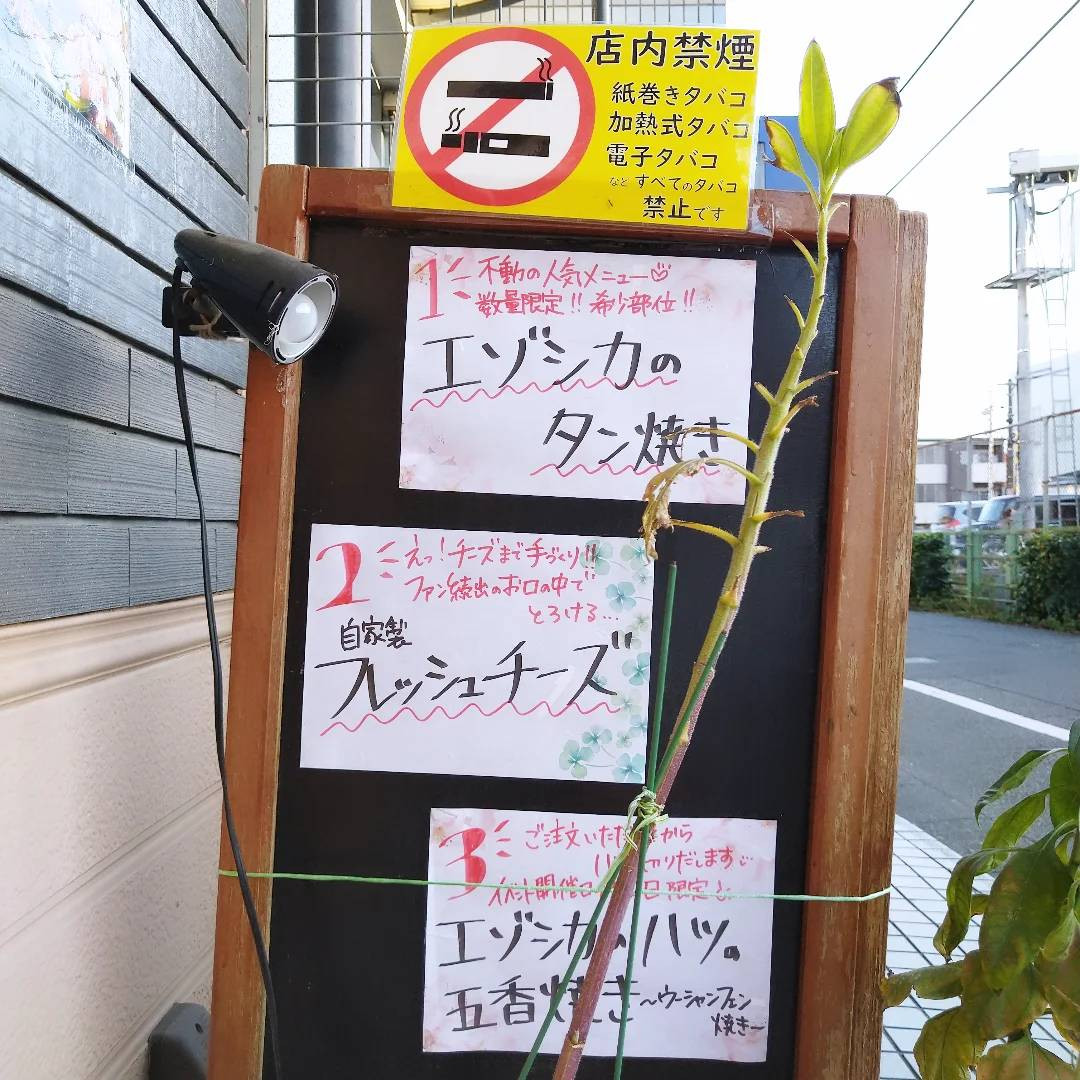 店内禁煙
紙巻きタバコ
加熱式タバコ
電子タバコ
など すべてのタバコ
禁止です
1 不動の人気メニュー♡
数量限定!! 希少部位!!
エゾシカの
タン焼き
2 えっ!チーズまで手づくり!!
ファン続出のお口の中で
とろける...
自家製
フレッシュチーズ
3 ご注文いただ から
りだします
イベント開催 日限定
エゾシカのハツの
五香焼き~ウーシャンフェン
焼き~